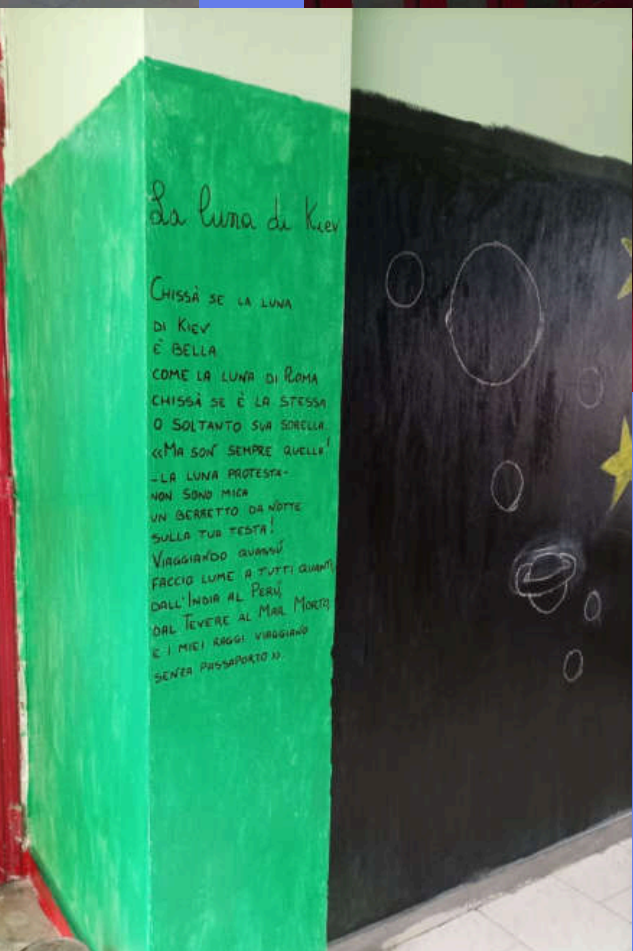 La luna di Kiev
CHISSÀ SE LA LUNA
DI KIEV
È BELLA
COME LA LUNA DI ROMA
CHISSÀ SE È LA STESSA
O SOLTANTO SUA SORELLA.
«MA SON SEMPRE QUELLA!
-LA LUNA PROTESTA-
NON SONO MICA
UN BERRETTO DA NOTTE
SULLA TUA TESTA!
VIAGGIANDO QUASSÙ
FACCIO LUME A TUTTI QUANTI,
DALL'INDIA AL PERÙ,
DAL TEVERE AL MAR MORTO,
E I MIEI RAGGI VIAGGIANO
SENZA PASSAPORTO».